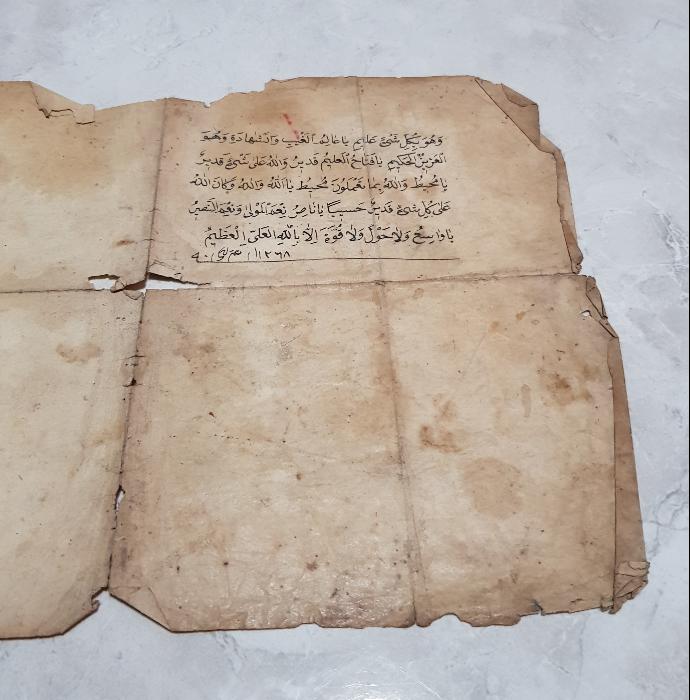 وَهُوَ بِكُلِّ شَئٍ عَلِيمٍ يَا عَالِمُ الْغَيْبِ وَالشَّهَادَةِ وَهُوَ
الْعَزِيزُ الْحَكِيمُ يَا فَتَّاحُ الْعَلِيمُ قَدِيرٌ وَاللهُ عَلَى شَئٍ قَدِيرٌ
يَا مُحِيطُ وَاللهُ بِمَا تَعْمَلُونَ مُحِيطٌ يَا اَللهُ وَاللهُ وَكَانَ اللهُ
عَلَى كُلِّ شَئٍ قَدِيرٌ حَسِيبًا يَا نَاصِرُ نِعْمَ الْمَوْلَى وَنِعْمَ النَّصِيرُ
يَا وَاسِعُ وَلَا حَوْلَ وَلَا قُوَّةَ اِلَّا بِاللهِ الْعَلِيِّ الْعَظِيمُ
١٢٦٨